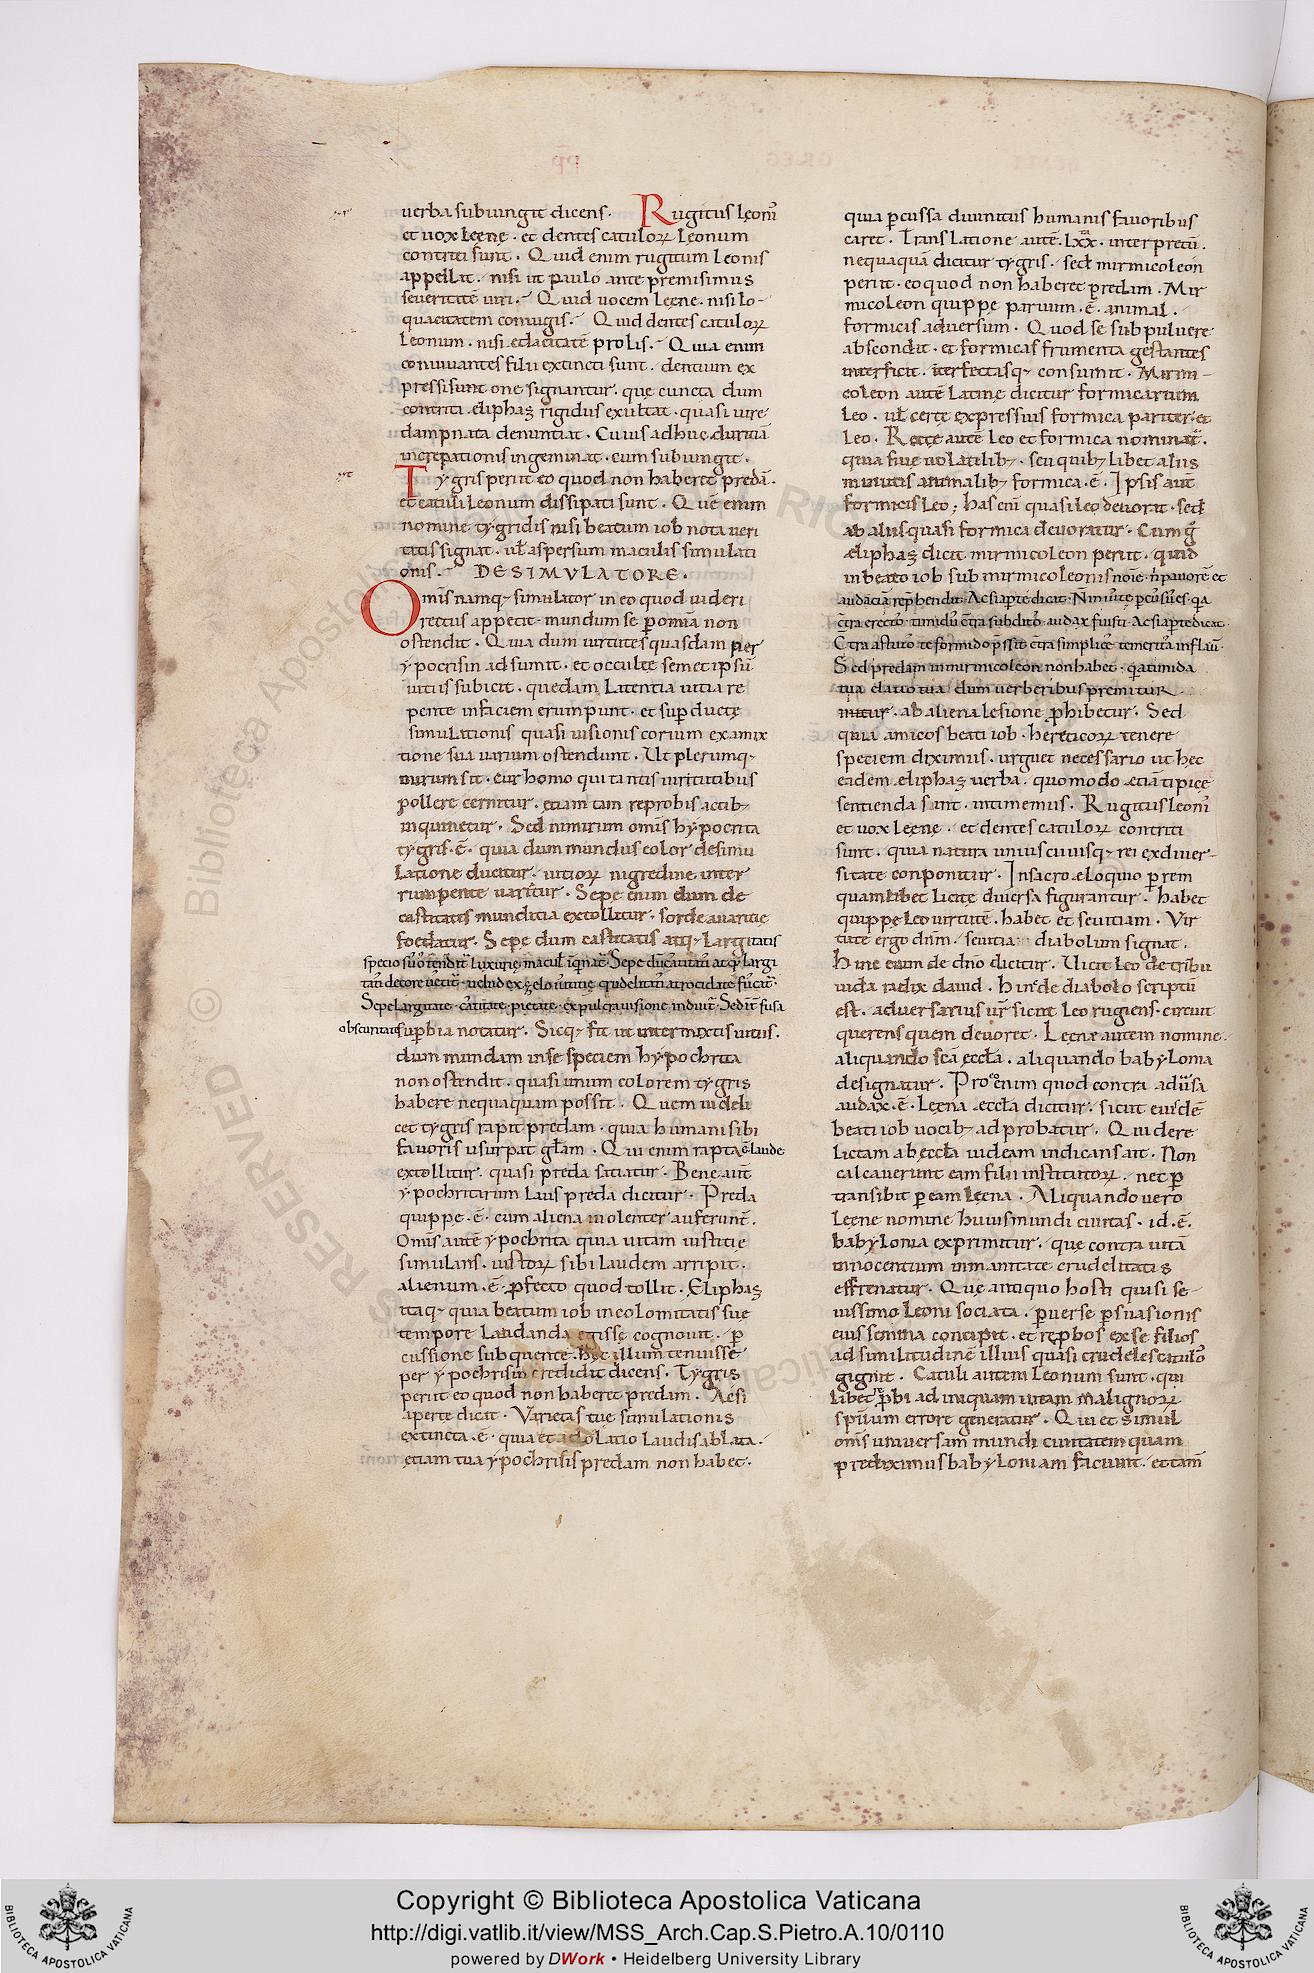 uerba subiungit dicens. Rugitus leonū
et uox leenę. et dentes catuloꝝ leonum
contriti sunt. Quid enim rugitum leonis
appellat. nisi ut paulo ante premisimus
seueritatē uiri. Quid uocem leęne. nisi lo-
quacitatem coniugis. Quid dentes catuloꝝ
leonum. nisi edacitatē prolis. Quia enim
conuiuantes filii extincti sunt. dentium ex
pressi sunt one signantur. que cuncta dum
contriti eliphaz rigidus exultat. quasi iure
dampnata denuntiat. Cuius adhuc duritiā
increpationis ingeminat. cum subiungit.
Tygris periit eo quod non haberet predā.
et catuli leonum dissipati sunt. Quē enim
nomine tygridis nisi beatum iob nota ueri
tatis signat. ul̄ aspersum maculis simulati
onis. DE SIMVLATORE.
Omīs namq; simulator in eo quod uideri
rectus appetit. mundum se p omīa non
ostendit. Quia dum uirtutes quasdam per
ypocrisin adsumit. et occulte semetipsū
uitiis subicit. quedam latentia uitia re
pente in faciem erumpunt. et sup ductę
simulationis quasi uisionis corium ex amix
tione sua uarium ostendunt. Ut plerumq;
mirum sit. cur homo qui tantis uirtutibus
pollere cernitur. etiam tam reprobis actib;
inquinetur. Sed nimirum omīs hypocrita
tygris. ē. quia dum mundus color de simu
latione ducitur. uitioꝝ nigredine inter
rumpente uariatur. Sepe enim dum de
castitatis munditia extollitur. sorde auaritię
foedatur. Sepe dum castitatis atq; largitatis
tat̄i decore
Sepe largitate. caritate. pietate.
obscuritate supbia notatur. Sicq; fit ut intermixtis uitiis.
dum mundam in se speciem hypochrita
non ostendit. quasi unum colorem tygris
habere nequaquam possit. Quem uideli
cet tygris rapit predam. quia humani sibi
fauoris usurpat glām. Qui enim rapta ē laude
extollitur. quasi preda satiatur. Bene aūt
ypochritarum laus preda dicitur. Preda
quippe. ē. cum aliena uiolenter auferunt̄.
Omīs autē ypochrita quia uitam iustitię
simulans. iustoꝝ sibi laudem arripit.
alienum. ē. pfecto quod tollit. Eliphaz
itaq; quia beatum iob incolomitatis suę
tempore laudanda egisse cognouit. p
cussione subquente. hęc illum tenuisse
per ypochrisin credidit dicens. Tygris
periit eo quod non haberet predam. Acsi
aperte dicat. Varietas tuę simulationis
extincta. ē. quia et adolatio laudis ablata.
etiam tua ypochrisis predam non habet.
quia pcussa diuinitus humanis fauoribus
caret. Translatione autē. lxx. interpretū.
nequaquā dicitur tygris. sed mirmicoleon
periit. eo quod non haberet predam. Mir
micoleon quippe paruum. ē. animal.
formicis aduersum. Quod se sub puluere
abscondit. et formicas frumenta gestantes
interficit. īterfectasq; consumit. Mirmi-
coleon autē latine dicitur formicarum
leo. ul̄ certe expressius formica pariter et
leo. Recte autē leo et formica nominat̄.
quia siue uolatilib; seu quib; libet aliis
minutis animalib; formica. ē. Ipsis aūt
formicis leo; has enī quasi leo deuorat. sed
ab aliis quasi formica deuoratur. Cum g̊
eliphaz dicit mirmicoleon periit. quid
in beato iob sub mirmicoleonis noīe. n̄ pauorē et
audaciā rep̄hendit.
Sed predam mirmicoleon non habet. q̄a timida
tua elatio tua dum uerberibus premitur
mitur. ab aliena lesione phibetur. Sed
quia amicos beati iob. hereticoꝝ tenere
speciem diximus. urguet necessario ut hec
eadem eliphaz uerba. quomodo etiā tipice
sentienda sunt. intimemus. Rugitus leonū
et uox leęnę. et dentes catuloꝝ contriti
sunt. quia natura unius cuiusq; rei ex diuer-
sitate conponitur. In sacro eloquio p rem
quamlibet licite diuersa figurantur. habet
quippe leo uirtutē. habet et seuitiam. Vir
tute ergo dn̄m. seuitia diabolum signat.
Hinc enim de dn̄o dicitur. Uicit leo de tribu
iuda radix dauid. Hinc de diabolo scriptū
est. aduersarius ur̄ sicut leo rugiens circuit
querens quem deuoret. Leęnæ autem nomine
aliquando scā ęccla. aliquando babylonia
designatur. Pro eo enim quod contra aduersa
audax. ē. leęna ęccla dicitur. sicut eiusdē
beati iob uocib; adprobatur. Qui dere
lictam ab ęccla iudeam indicans ait. Non
calcauerunt eam filii institutoꝝ. nec p
transibit p eam leęna. Aliquando uero
leęne nomine huius mundi ciuitas. id. ē.
babylonia exprimitur. que contra uitā
innocentium inmanitate crudelitatis
effrenatur. Que antiquo hosti quasi se-
uissimo leoni sociata. puerse psuasionis
eius semina concipit. et repbos ex se filios
ad similitudinē illius quasi crudeles catulos
gignit. Catuli autem leonum sunt. qui
libet r̄pbi ad iniquam uitam malignoꝝ
spirituum errore generatur. Qui et simul
omīs uniuersam mundi ciuitatem quam
prediximus babyloniam faciunt. et tam̄
Copyright © Biblioteca Apostolica Vaticana
http://digi.vatlib.it/view/MSS_Arch.Cap.S.Pietro.A.10/0110
powered by DWork • Heidelberg University Library